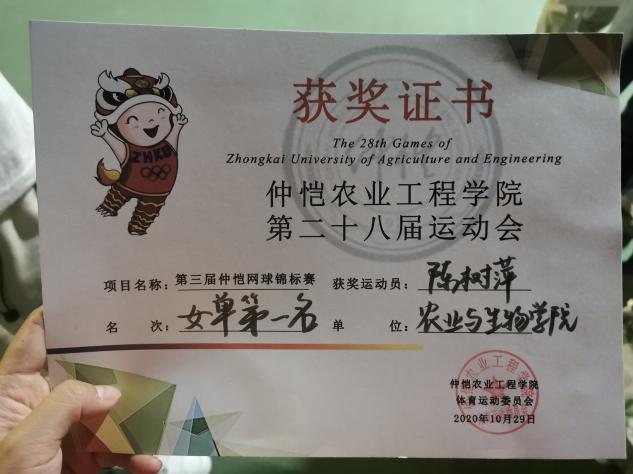 获奖证书
The 28th Games of
Zhongkai University of Agriculture and Engineering
仲恺农业工程学院
第二十八届运动会
ZHKU
项目名称：第三届仲恺网球锦标赛 获奖运动员：陈树萍
名 次：女单第一名 单 位：农业与生物学院
仲恺农业工程学院
体育运动委员会
2020年10月29日